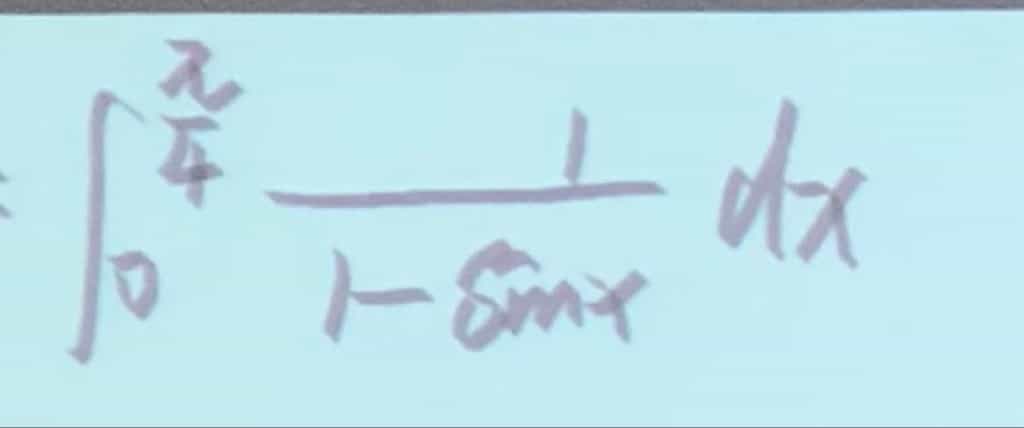 = ∫_0^{π/4} 1/(1-sinx) dx